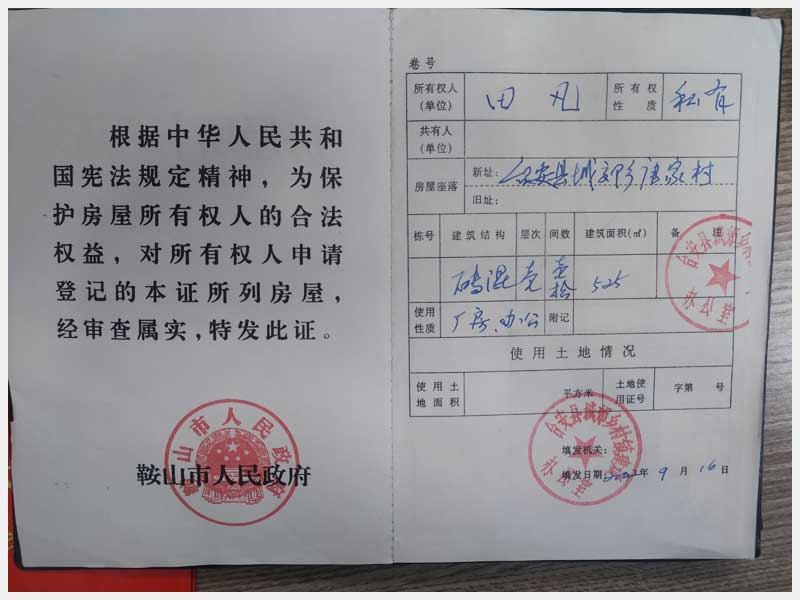 根据中华人民共和
国宪法规定精神，为保
护房屋所有权人的合法
权益，对所有权人申请
登记的本证所列房屋，
经审查属实，特发此证。
鞍山市人民政府
鞍山市人民政府
卷号
所有权人
(单位)
田凡
所有权
性质
私有
共有人
(单位)
房屋座落
新址：台安县城郊乡唐家村
旧址：
栋号 建筑结构 层次 间数 建筑面积(㎡) 备注
砖混 壹 壹拾 525
使用
性质
厂房、办公
附记
使用土地情况
使用土
地面积
平方米
土地使
用证号
字第 号
台安县城郊乡
办公室
台安县城郊乡村镇建设
办公室
填发机关：
填发日期：2002年9月16日